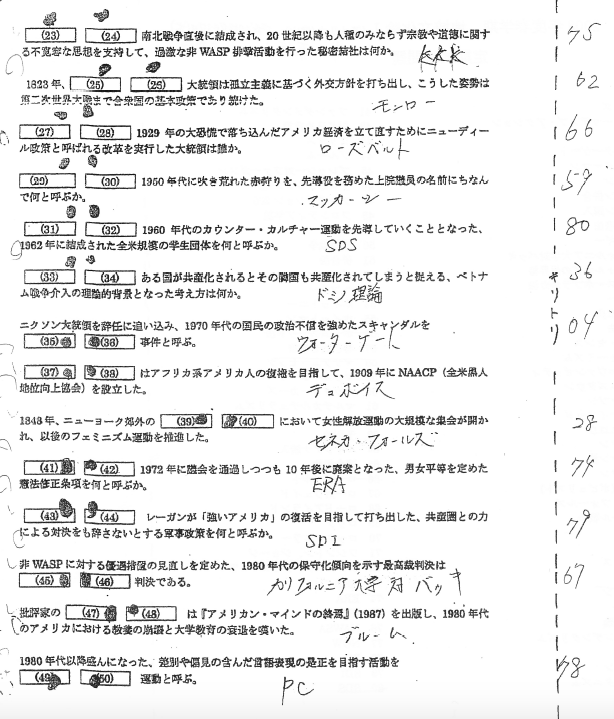 (23) (24) 南北戦争直後に結成され、20 世紀以降も人種のみならず宗教や道徳に関す
る不寛容な思想を支持して、過激な非 WASP 排撃活動を行った秘密結社は何か。 KKK 45
1823 年、 (25) (26) 大統領は孤立主義に基づく外交方針を打ち出し、こうした姿勢は 62
第二次世界大戦まで合衆国の基本政策であり続けた。 モンロー
(27) (28) 1929 年の大恐慌で落ち込んだアメリカ経済を立て直すためにニューディー 66
ル政策と呼ばれる改革を実行した大統領は誰か。 ローズベルト
(29) (30) 1950 年代に吹き荒れた赤狩りを、先導役を務めた上院議員の名前にちなん 59
で何と呼ぶか。 マッカーシー
(31) (32) 1960 年代のカウンター・カルチャー運動を先導していくこととなった、 80
1962 年に結成された全米規模の学生団体を何と呼ぶか。 SDS
(33) (34) ある国が共産化されるとその隣国も共産化されてしまうと捉える、ベトナ 36
ム戦争介入の理論的背景となった考え方は何か。 ドミノ理論
キリトリ
ニクソン大統領を辞任に追い込み、1970 年代の国民の政治不信を強めたスキャンダルを 04
(35) (36) 事件と呼ぶ。 ウォーターゲート
(37) (38) はアフリカ系アメリカ人の復権を目指して、1909 年に NAACP（全米黒人
地位向上協会）を設立した。 デュボイス
1848 年、ニューヨーク郊外の (39) (40) において女性解放運動の大規模な集会が開か 28
れ、以後のフェミニズム運動を推進した。 セネカ・フォールズ
(41) (42) 1972 年に議会を通過しつつも 10 年後に廃案となった、男女平等を定めた 74
憲法修正条項を何と呼ぶか。 ERA
(43) (44) レーガンが「強いアメリカ」の復活を目指して打ち出した、共産圏との力 79
による対決をも辞さないとする軍事政策を何と呼ぶか。 SDI
非 WASP に対する優遇措置の見直しを定めた、1980 年代の保守化傾向を示す最高裁判決は 67
(45) (46) 判決である。 カリフォルニア大学対バッキ
批評家の (47) (48) は『アメリカン・マインドの終焉』(1987) を出版し、1980 年代
のアメリカにおける教養の崩壊と大学教育の衰退を嘆いた。 ブルーム
1980 年代以降盛んになった、差別や偏見の含んだ言語表現の是正を目指す活動を 78
(49) (50) 運動と呼ぶ。 PC